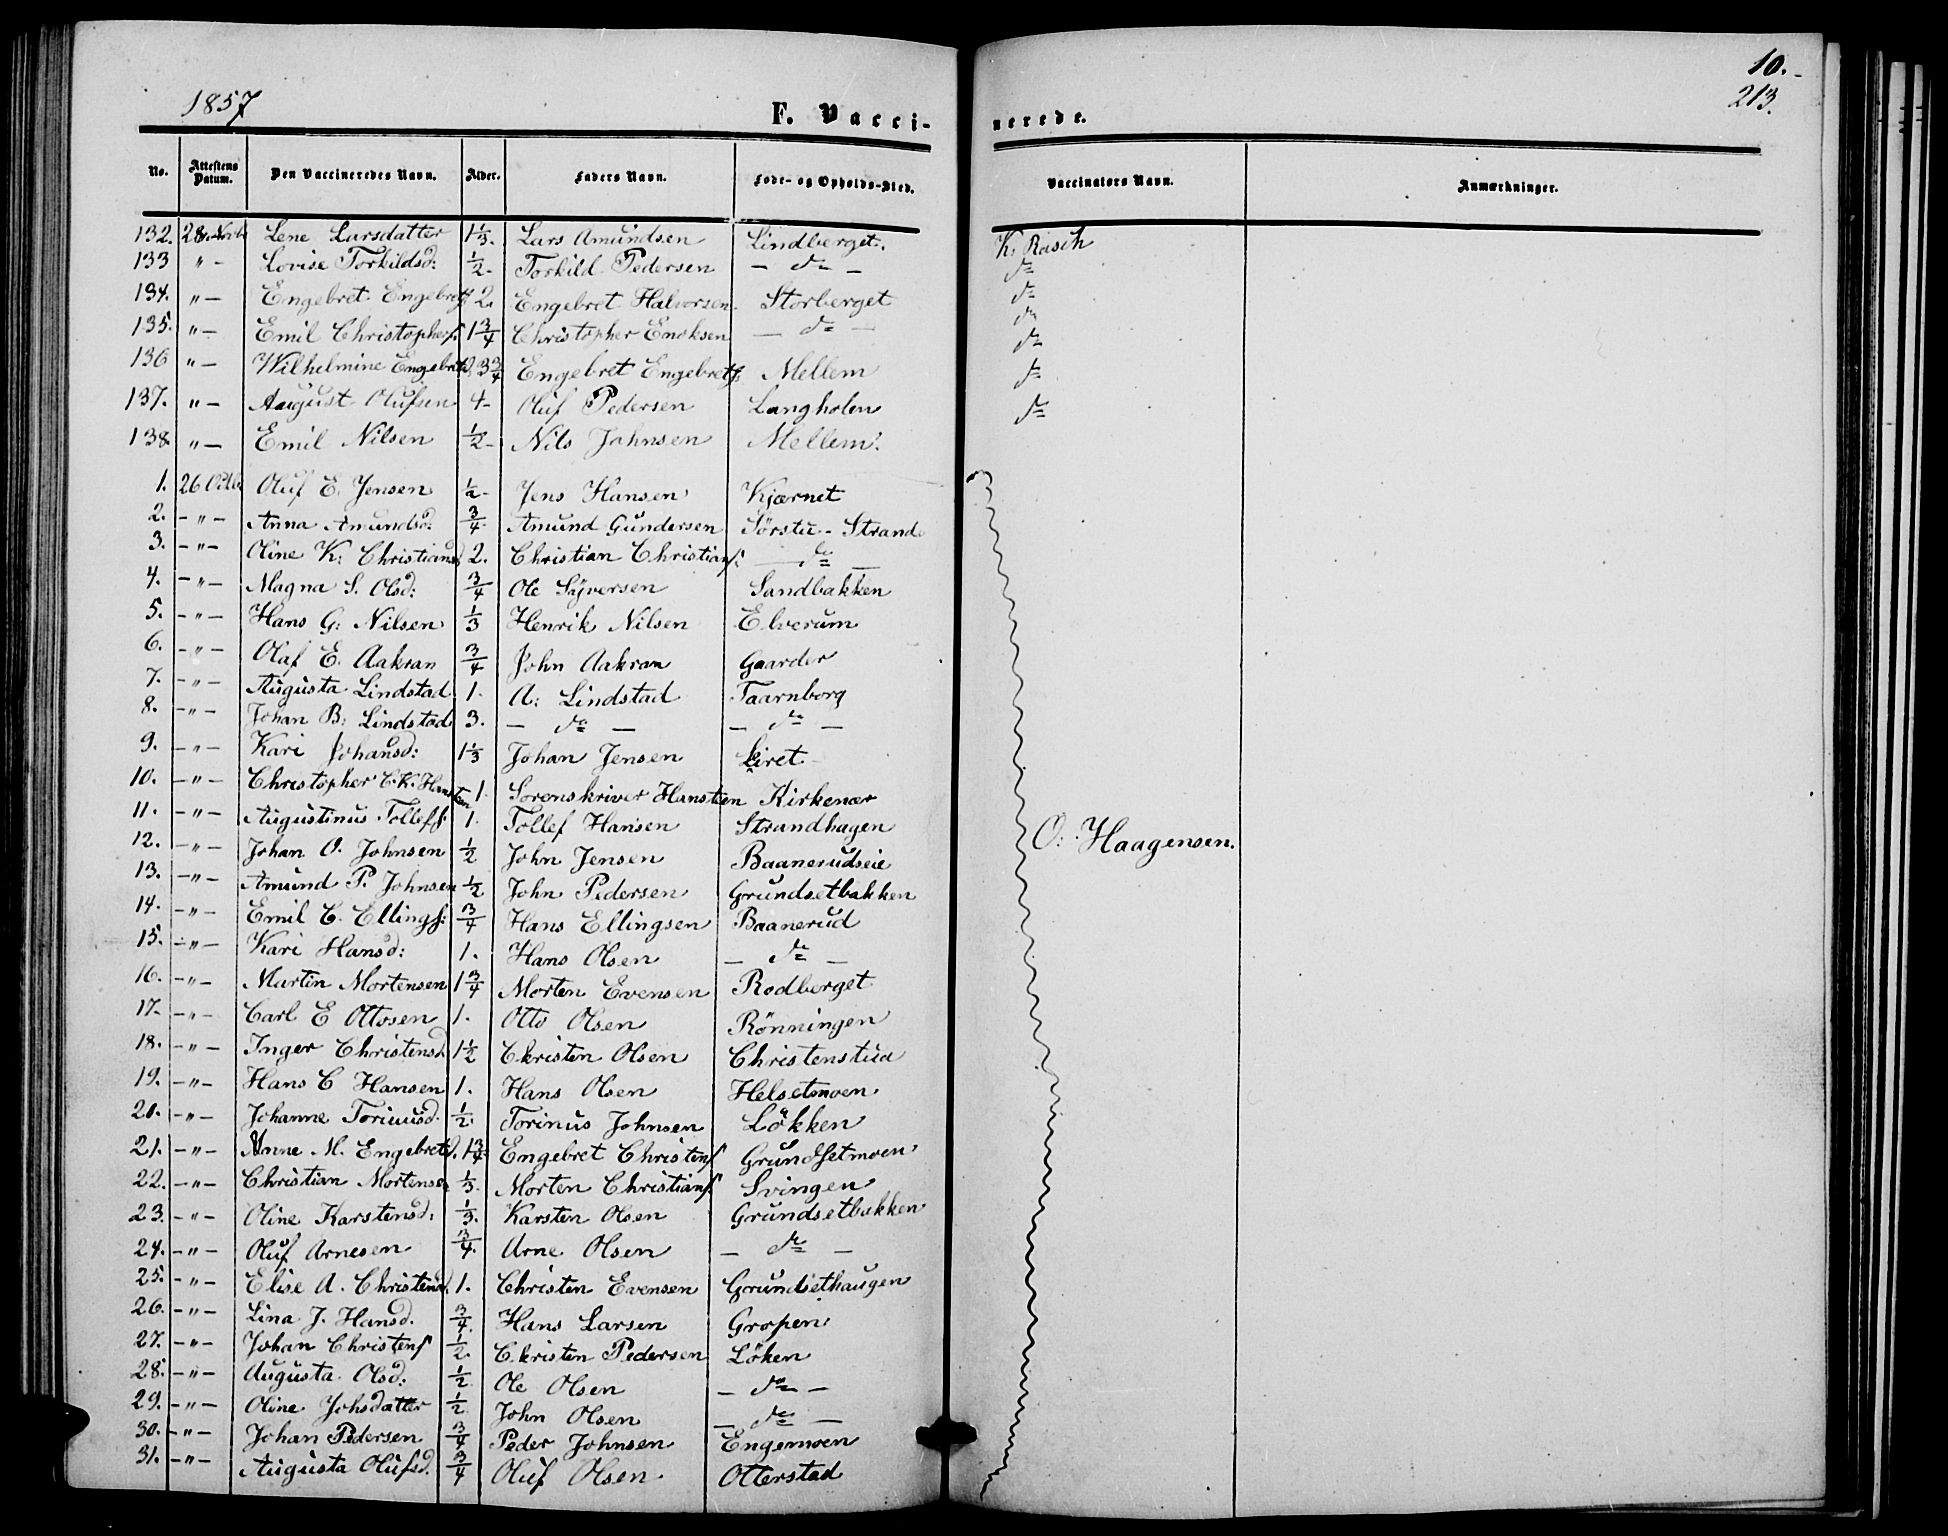 1857 F. Vacci-nerede. 10.
213.
No. Attestens Datum. Den Vaccineredes Navn. Alder. Faders Navn. Føde- og Opholds-Sted. Vaccinators Navn. Anmærkninger.
132. 28 Novbr Lene Larsdatter 1 1/3. Lars Amundsen Lindberget. K. Rasch
133 " - Lovise Torkildsd: 1/2 - Torkild Pedersen - do - do
134. " - Engebret Engebretss 2. Engebret Halvorsen Storberget do
135. " - Emil Christophers. 1 3/4 Christopher Enoksen - do - do
136 " - Wilhelmine Engebretsd. 3 3/4 Engebret Engebretss Mellem do
137. " - August Olufsen 4 - Oluf Pedersen Langholen do
138 " - Emil Nilsen 1/2 - Nils Johnsen Mellem. do
1. 26 Octbr Oluf E. Jensen 1/2 - Jens Hansen Kjærnet
2. - " - Anna Amundsd: 3/4. Amund Gundersen Sörstu - Strand
3. - " - Oline K: Christiansd 2. Christian Christians: - do -
4. - " - Magna S. Olsd: 3/4 Ole Syversen Sandbakken
5. - " - Hans G: Nilsen 1/3 Henrik Nilsen Elverum
6. - " - Olaf E. Aakran 3/4 John Aakran Gaarder
7. - " - Augusta Lindstad 1. A: Lindstad Taarnborg
8. - " - Johan B: Lindstad 3. - do - - do -
9. - " - Kari Johansd: 1 1/3 Johan Jensen Liret
10. - " - Christopher C. K. Hansteen 1. Sorenskriver Hansteen Kirkenær
11. - " - Augustinus Tollefs: 1. Tollef Hansen Strandhagen
12. - " - Johan O. Johnsen 1/2 John Jensen Baanerudseie O: Haagensen.
13. - " - Amund P. Johnsen 1/2 John Pedersen Grundsetbakken
14. - " - Emil C. Ellings: 3/4 Hans Ellingsen Baanerud
15. - " - Kari Hansd: 1. Hans Olsen - do -
16. - " - Martin Mortensen 1 3/4 Morten Evensen Rodberget
17 - - " - Carl E Ottosen 1. Otto Olsen Rönningen
18. - " - Inger Christensd. 1 1/2 Christen Olsen Christenstua
19. - " - Hans C Hansen 1. Hans Olsen Helsetmoen
20. - " - Johanne Torinusd. 1/2. Torinus Johnsen Lökken
21. - " - Anne M. Engebretsd. 1 3/4 Engebret Christens Grundsetmoen
22. - " - Christian Mortensen 1/3. Morten Christians. Svingen
23. - " - Oline Karstensd: 1/3. Karsten Olsen Grundsetbakken
24. - " - Oluf Arnesen 3/4. Arne Olsen - do -
25. - " - Elise A. Christensd. 1. Christen Evensen Grundsethaugen
26. - " - Lina J. Hansd. 3/4. Hans Larsen Gropen
27. - " - Johan Christens 1/2. Christen Pedersen Löken
28. - " - Augusta Olsd: 1/2 Ole Olsen - do -
29. - " - Oline Johsdatter 1/2. John Olsen - do -
30. - " - Johan Pedersen 3/4 Peder Johnsen Engemoen
31. - " - Augusta Olufsd. 3/4 Oluf Olsen Otterstad